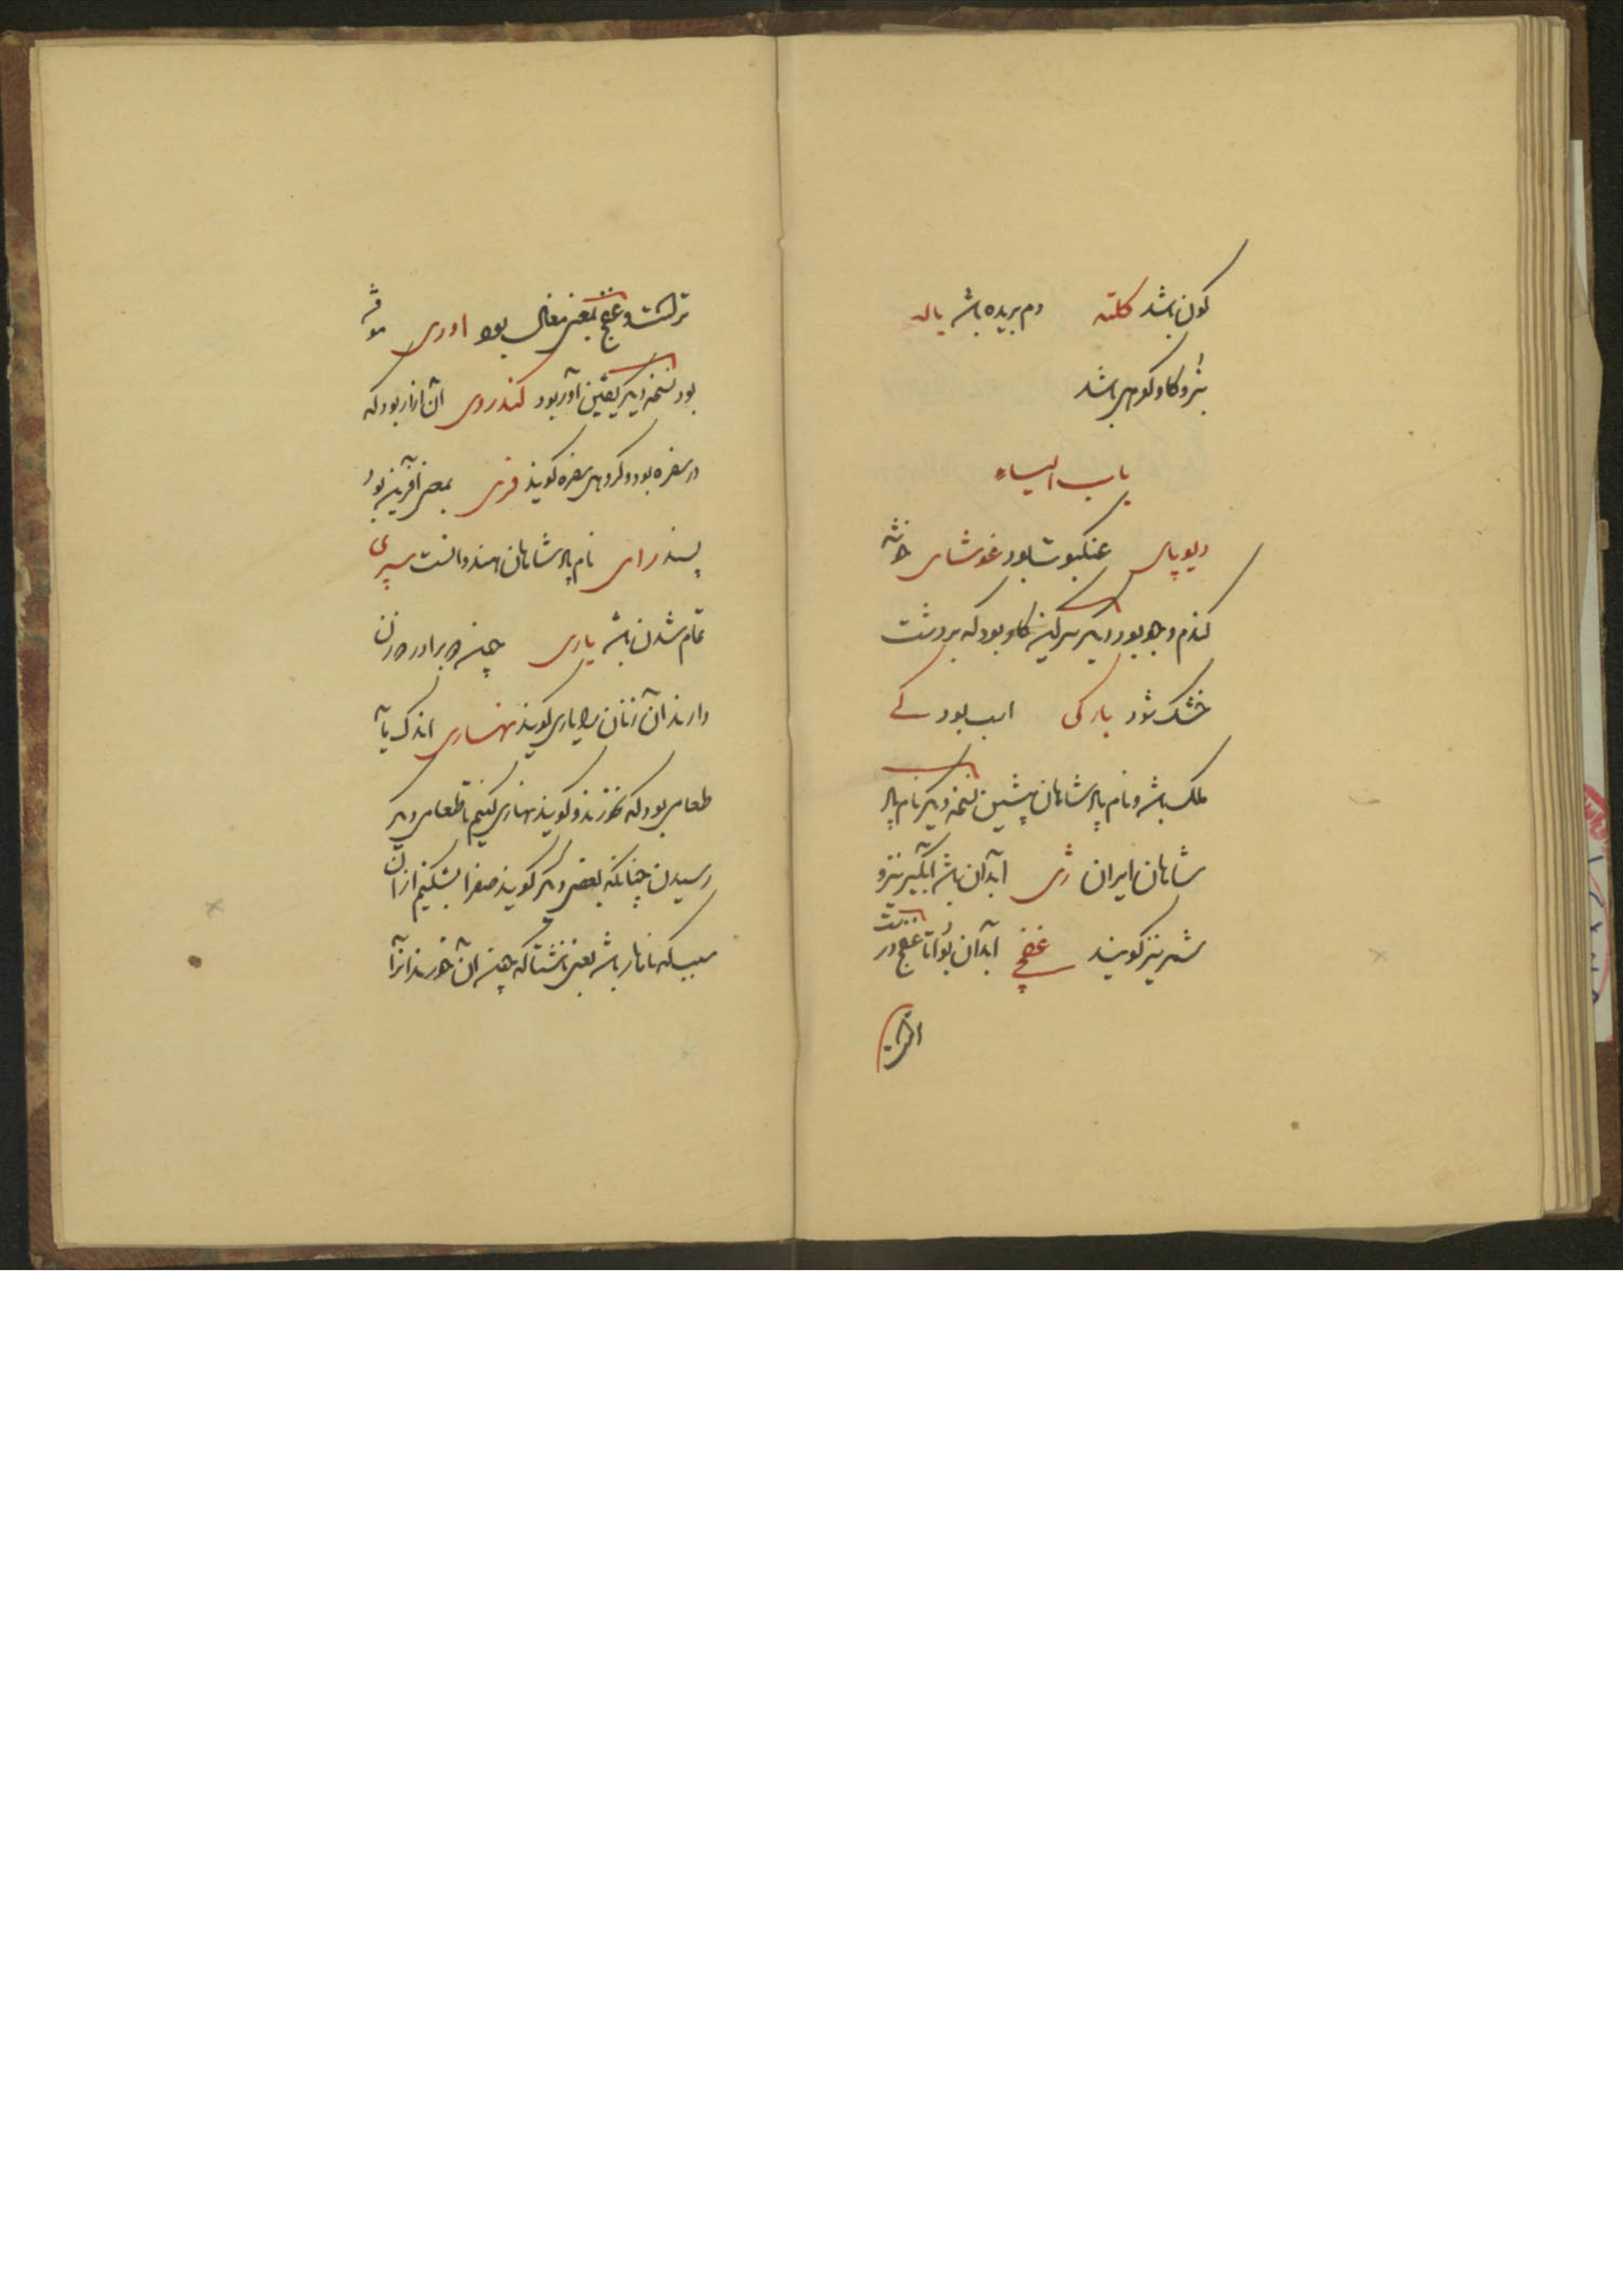 کون باشد کلته دم بریده باشد یاله
بترو کاو کوهی باشد
باب الیاء
دیوپای عنکبوت بود غوشای خوشه
کندم و جو بود دیگر سرکین کاو بود که بر دشت
خشک شود بارکی اسب بود کی
ملک باشد و نام پادشاهان پیشین نسخه دیگر نام پاد
شاهان ایران ژی آبدان باشد آبکیر نیز و
شمر نیز کویند غفجی آبدان بود اما غفج در
ترکست و غفج بمعنی مغاک بود اوری
بود نسخه دیگر یقین آور بود کندروی آن ازار بود که
در سفره بود و کروهی سفره کویند فری بمعنی آفرین بود
پسند رای نام پادشاهان هندوانست سپری
تمام شدن باشد یاری چون دو برادر دو زن
دارند آن زنان را یاری کویند نهاری اندک مایه
طعامی بود که خورند و کویند نهاری کنیم تا طعامی دیگر
رسیدن چنانکه بعضی دیگر کویند صفرا بشکنیم از آن
سبب که ناهار باشد یعنی ناشتا که چون آن خورند آنرا